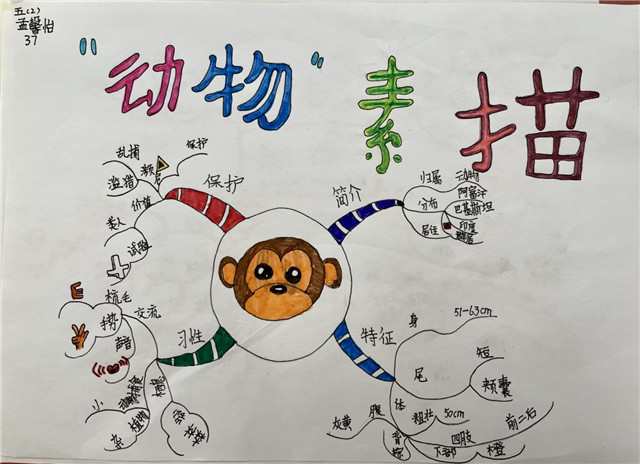 五(2)
孟馨怡
37
"动物"素描
保护
乱捕
滥猎
濒危
保护
价值
类人
试验
简介
归属
动物
分布
阿富汗
巴基斯坦
印度
居住
习性
交流
梳毛
手势
声音
捕食
小
植物
杂
栖息
特征
身
51-63cm
尾
短
颊囊
体
粗壮
50cm
腹
灰黄
背
四肢
前二后
下部
橙